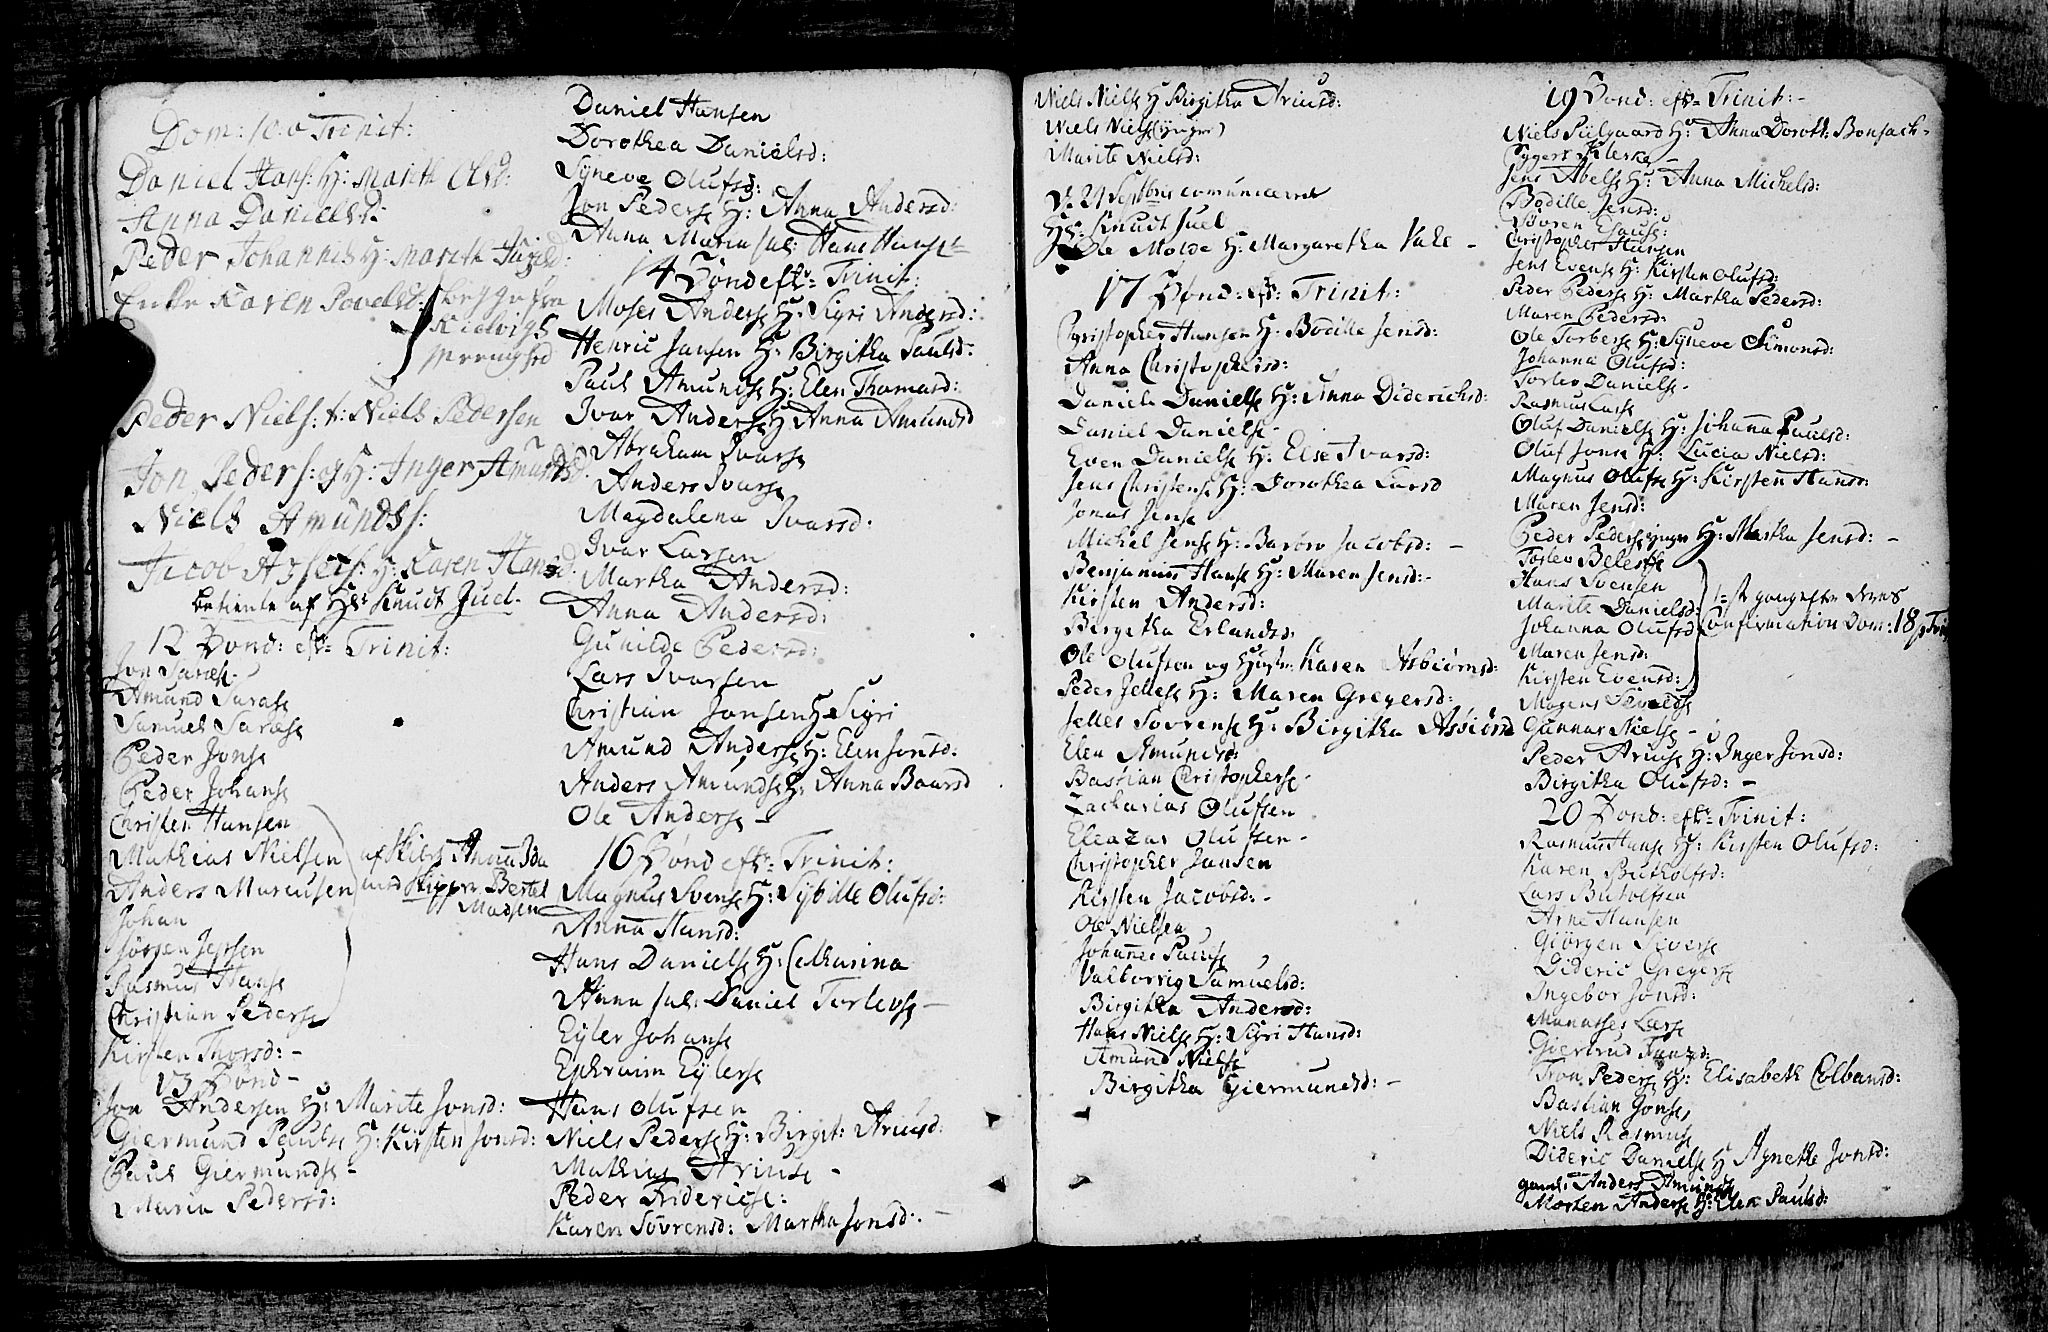 Dom: 10. a Trinit:
Daniel Hans: H: Marith Olsd:
Anna Danielsd:
Peder Johannis H: Marith
Enke Karen Povelsd: begge fra
Kielvigs
Menighed
Peder Niels: &: Niels Pedersen
Jon Peders: og H: Inger Amundsd:
Niels Amundss:
Jacob H: Karen Hansd:
betiente af Hr: Knuct Juel.
12 Sønd: eft= Trinit:
Jon Saras
Amund Sarase
Samuel Sarase
Peder Jonse
Peder Johanse
Christen Hansen
Mathias Nielsen af Skibet Anna Ida
Anders Marcusen med Skipper Bertel
Madsen
Johan
Jörgen Jepsen
Rasmus Hanse
Christian Pederse
Kirsten Thorsd: -
13 Sønd -
Jon Andersen H: Marite Jonsd:
Giermund Paulse H: Kirsten Jonsd:
Paul Giermundse -
Maria Pedersd:
Daniel Hansen
Dorothea Danielsd:
Syneve Olufsd:
Jon Pederse H: Anna Andersd:
Anna Maria sal: Hans Hanse
14 Sønd eft= Trinit:
Moses Anderse H: Sigri Andersd:
Henric Jansen H: Birgitha Paulsd:
Paul Amundse H: Elen Thomasd:
Ivar Anderse H Anna Amundsd
Abraham Ivarse
Anders Ivarse
Magdalena Ivarsd:
Ivar Larsen
Martha Andersd:
Anna Andersd:
Gunilde Pedersd:
Lars Ivarsen
Christian Jonsen H Sigri
Amund Anderse H: Elen Jonsd:
Anders Amundse H: Anna Baarsd
Ole Anderse -
16 Sønd eft= Trinit:
Magnus Svense H: Sybille Olufsd:
Anna Hansd:
Hans Danielse H: Catharina
Anna sal: Daniel Torlevse -
Eyler Johanse
Ephraim Eylerse
Hans Olufsen
Niels Pederse H: Birgit: Ariusd:
Mathias Ariuse -
Peder Fridericse:
Karen Sövrensd: Martha Jonsd: -
Niels Nielse H Birgitha Ariusd:
Niels Nielse (ynger)
Marite Nielsd:
d. 21 Septbris comunicerede
Hr: Knuct Juel
Ole Molde H: Margaretha Vake -
17 Sønd: eft= Trinit:
Christopher Hansen H: Bodille Jensd:
Anna Christophersd:
Daniel Danielse H: Anna Diderichsd:
Daniel Danielse -
Even Danielse H: Else Ivarsd:
Jens Christense H: Dorothea Larsd
Jonas Jense
Michel Jense H: Barbro Jacobsd: -
Benjamin Hanse H: Maren Jensd: -
Kirsten Andersd:
Birgitha Erlandsd.
Ole Olufsen og Hustr: Karen Asbiörnsd:
Peder Jellese H: Maren Gregersd:
Jelles Sövrense H: Birgitha Asbiörnd
Elen Amundsd:
Bastian Christopherse -
Zacharias Olufsen
Eleazar Olufsen -
Christopher Jansen
Kirsten Jacobsd: -
Ole Nielsen
Johannes Paulse
Valborrig Samuelsd:
Birgitha Andersd:
Hans Nielse H: Sigri Hansd:
Amund Nielse
Birgitha Giermundsd: -
19 Sønd: eft= Trinit: -
Niels Piilgaard H: Anna Dorott: Bonsach -
Jens Abelse H: Anna Michelsd:
Bodille Jensd:
Sövren Esause:
Christopher Hansen
Jens Evense H: Kirsten Olufsd:
Peder Pederse H: Martha Pedersd:
Maren Pedersd:
Ole Torberse H: Syneve Simonsd:
Johanna Olufsd:
Torlev Danielse -
Rasmus Larse
Oluf Danielse H: Johanna Paulsd:
Oluf Jonse H: Lucia Nielsd:
Magnus Olufse H: Kirsten Hansd:
Maren Jensd:
Peder Pederse ynger H: Martha Jensd: -
Torlev
Hans Svensen
Marite Danielsd: 1ste gang efter deres
Johanna Olufsd Confirmation Dom: 18 p Trin
Maren Jensd:
Kirsten Evensd:
Mogens Sivertse
Gunnar Nielse -
Peder Ariuse H: Inger Jonsd:
Birgitha Olufsd: -
20 Sønd: eft= Trinit:
Rasmus Hanse H: Kirsten Olufsd:
Karen Butholfsd:
Lars Butolfsen
Arne Hansen
Giörgen Siverse
Dideric Gregerse
Ingebor Jonsd:
Manasses Larse
Giertrud
Tron Pederse H: Elisabeth Colbansd:
Bastian Jonse
Niels Rasmuse
Dideric Danielse H Agnethe Jonsd:
gaml: Anders Amundse
Morten Anderse H: Elen Paulsd: